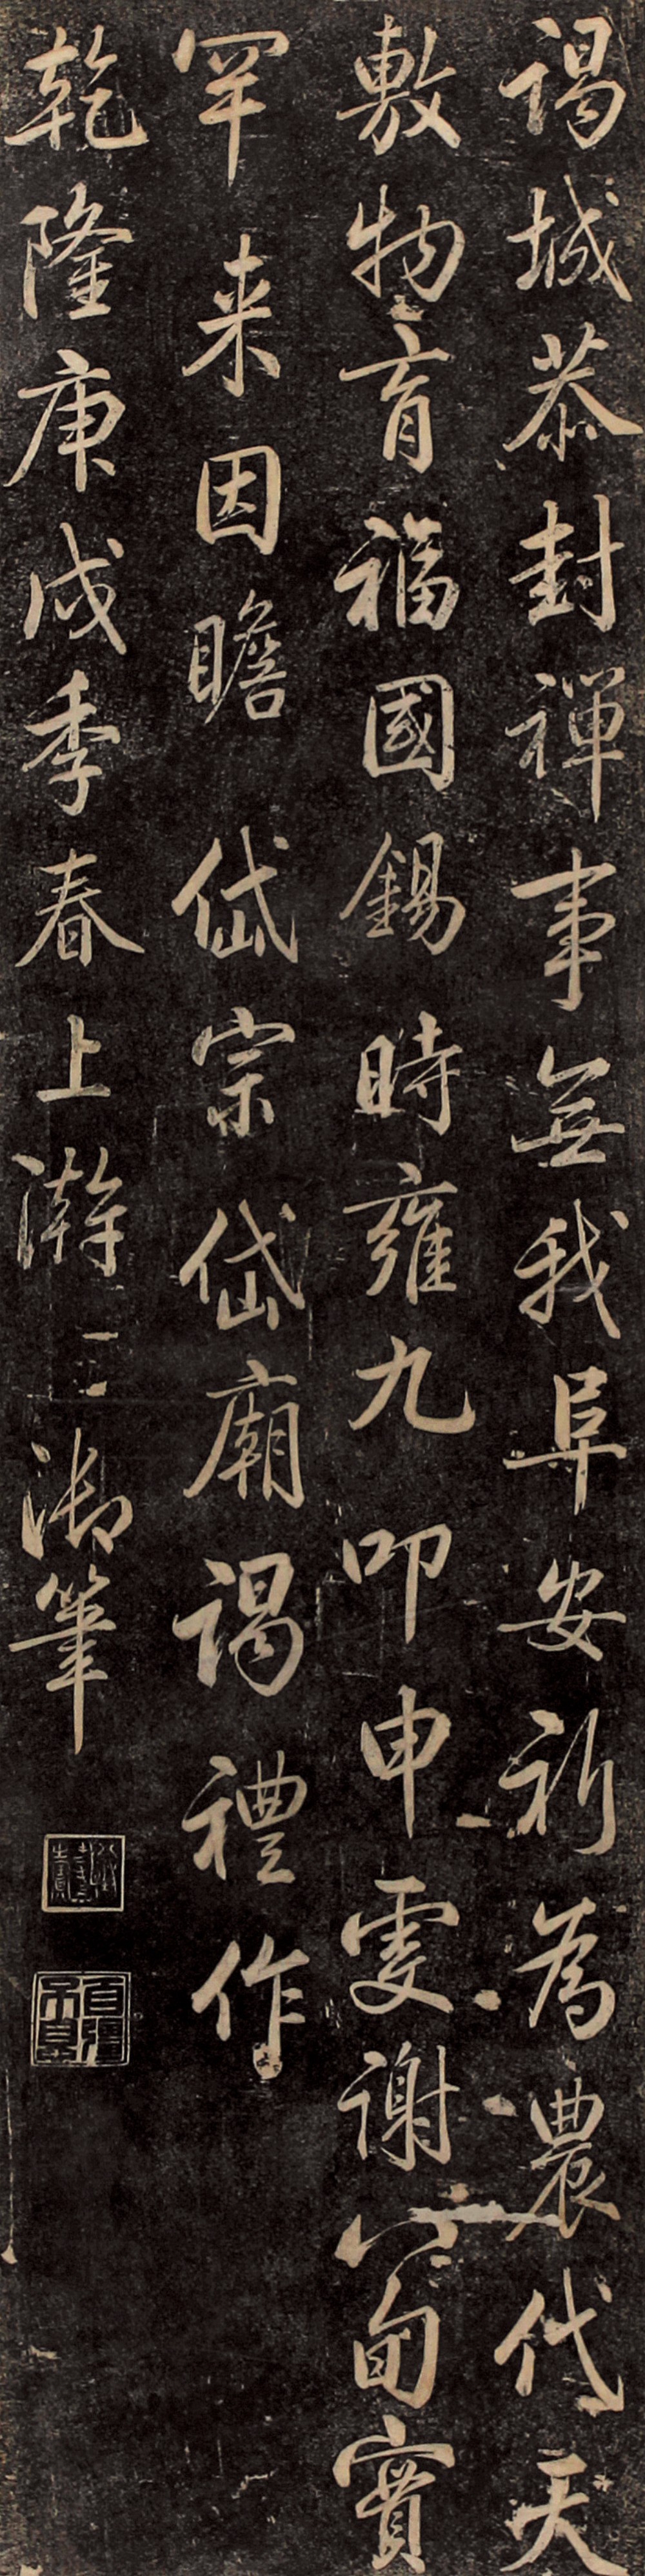 謁城恭封禪事無我阜安祈為農代天
敷物育福國錫時雍九叩申雩謝八旬實
罕来因瞻岱宗岱廟謁禮作
乾隆庚戌季春上澣御筆
自彊不息